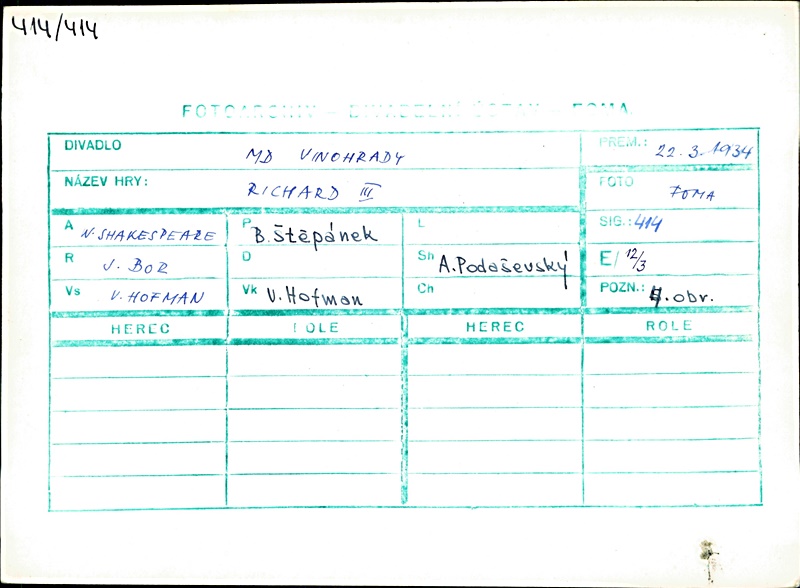 414/414
FOTOARCHIV – DIVADELNÍ ÚSTAV – FOMA
DIVADLO MD VINOHRADY PREM.: 22.3.1934
NÁZEV HRY: RICHARD III FOTO FOMA
A W. SHAKESPEARE P B. Štěpánek L SIG.: 414
R J. BOR D Sh A. Podaševský E/ 12/3
Vs V. HOFMAN Vk V. Hofman Ch POZN.: 4. obr.
HEREC ROLE HEREC ROLE